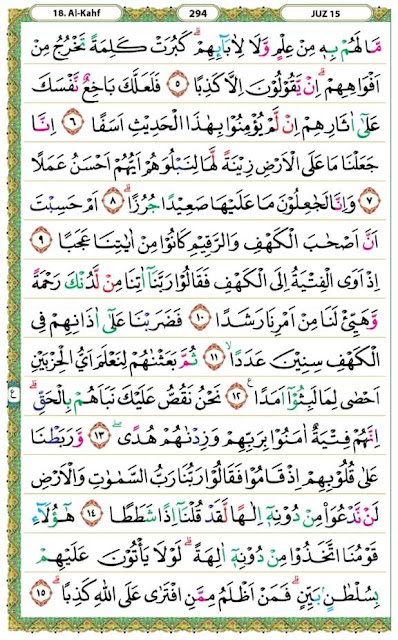 18. Al-Kahf 294 JUZ 15
مَا لَهُمْ بِهٖ مِنْ عِلْمٍ وَّلَا لِاٰبَآئِهِمْ ۗ كَبُرَتْ كَلِمَةً تَخْرُجُ مِنْ
اَفْوَاهِهِمْ ۗ اِنْ يَّقُوْلُوْنَ اِلَّا كَذِبًا ٥ فَلَعَلَّكَ بَاخِعٌ نَّفْسَكَ
عَلٰٓى اٰثَارِهِمْ اِنْ لَّمْ يُؤْمِنُوْا بِهٰذَا الْحَدِيْثِ اَسَفًا ٦ اِنَّا
جَعَلْنَا مَا عَلَى الْاَرْضِ زِيْنَةً لَّهَا لِنَبْلُوَهُمْ اَيُّهُمْ اَحْسَنُ عَمَلًا
٧ وَاِنَّا لَجٰعِلُوْنَ مَا عَلَيْهَا صَعِيْدًا جُرُزًا ۗ ٨ اَمْ حَسِبْتَ
اَنَّ اَصْحٰبَ الْكَهْفِ وَالرَّقِيْمِ كَانُوْا مِنْ اٰيٰتِنَا عَجَبًا ٩
اِذْ اَوَى الْفِتْيَةُ اِلَى الْكَهْفِ فَقَالُوْا رَبَّنَآ اٰتِنَا مِنْ لَّدُنْكَ رَحْمَةً
وَّهَيِّئْ لَنَا مِنْ اَمْرِنَا رَشَدًا ١٠ فَضَرَبْنَا عَلٰٓى اٰذَانِهِمْ فِى
الْكَهْفِ سِنِيْنَ عَدَدًا ۙ ١١ ثُمَّ بَعَثْنٰهُمْ لِنَعْلَمَ اَيُّ الْحِزْبَيْنِ
اَحْصٰى لِمَا لَبِثُوْٓا اَمَدًا ࣖ ١٢ نَحْنُ نَقُصُّ عَلَيْكَ نَبَاَهُمْ بِالْحَقِّ ۗ
ع
اِنَّهُمْ فِتْيَةٌ اٰمَنُوْا بِرَبِّهِمْ وَزِدْنٰهُمْ هُدًى ۖ ١٣ وَّرَبَطْنَا
عَلٰى قُلُوْبِهِمْ اِذْ قَامُوْا فَقَالُوْا رَبُّنَا رَبُّ السَّمٰوٰتِ وَالْاَرْضِ
لَنْ نَّدْعُوَا۟ مِنْ دُوْنِهٖٓ اِلٰهًا لَّقَدْ قُلْنَآ اِذًا شَطَطًا ١٤ هٰٓؤُلَآءِ
قَوْمُنَا اتَّخَذُوْا مِنْ دُوْنِهٖٓ اٰلِهَةً ۗ لَوْلَا يَأْتُوْنَ عَلَيْهِمْ
بِسُلْطٰنٍۢ بَيِّنٍ ۗ فَمَنْ اَظْلَمُ مِمَّنِ افْتَرٰى عَلَى اللّٰهِ كَذِبًا ۗ ١٥